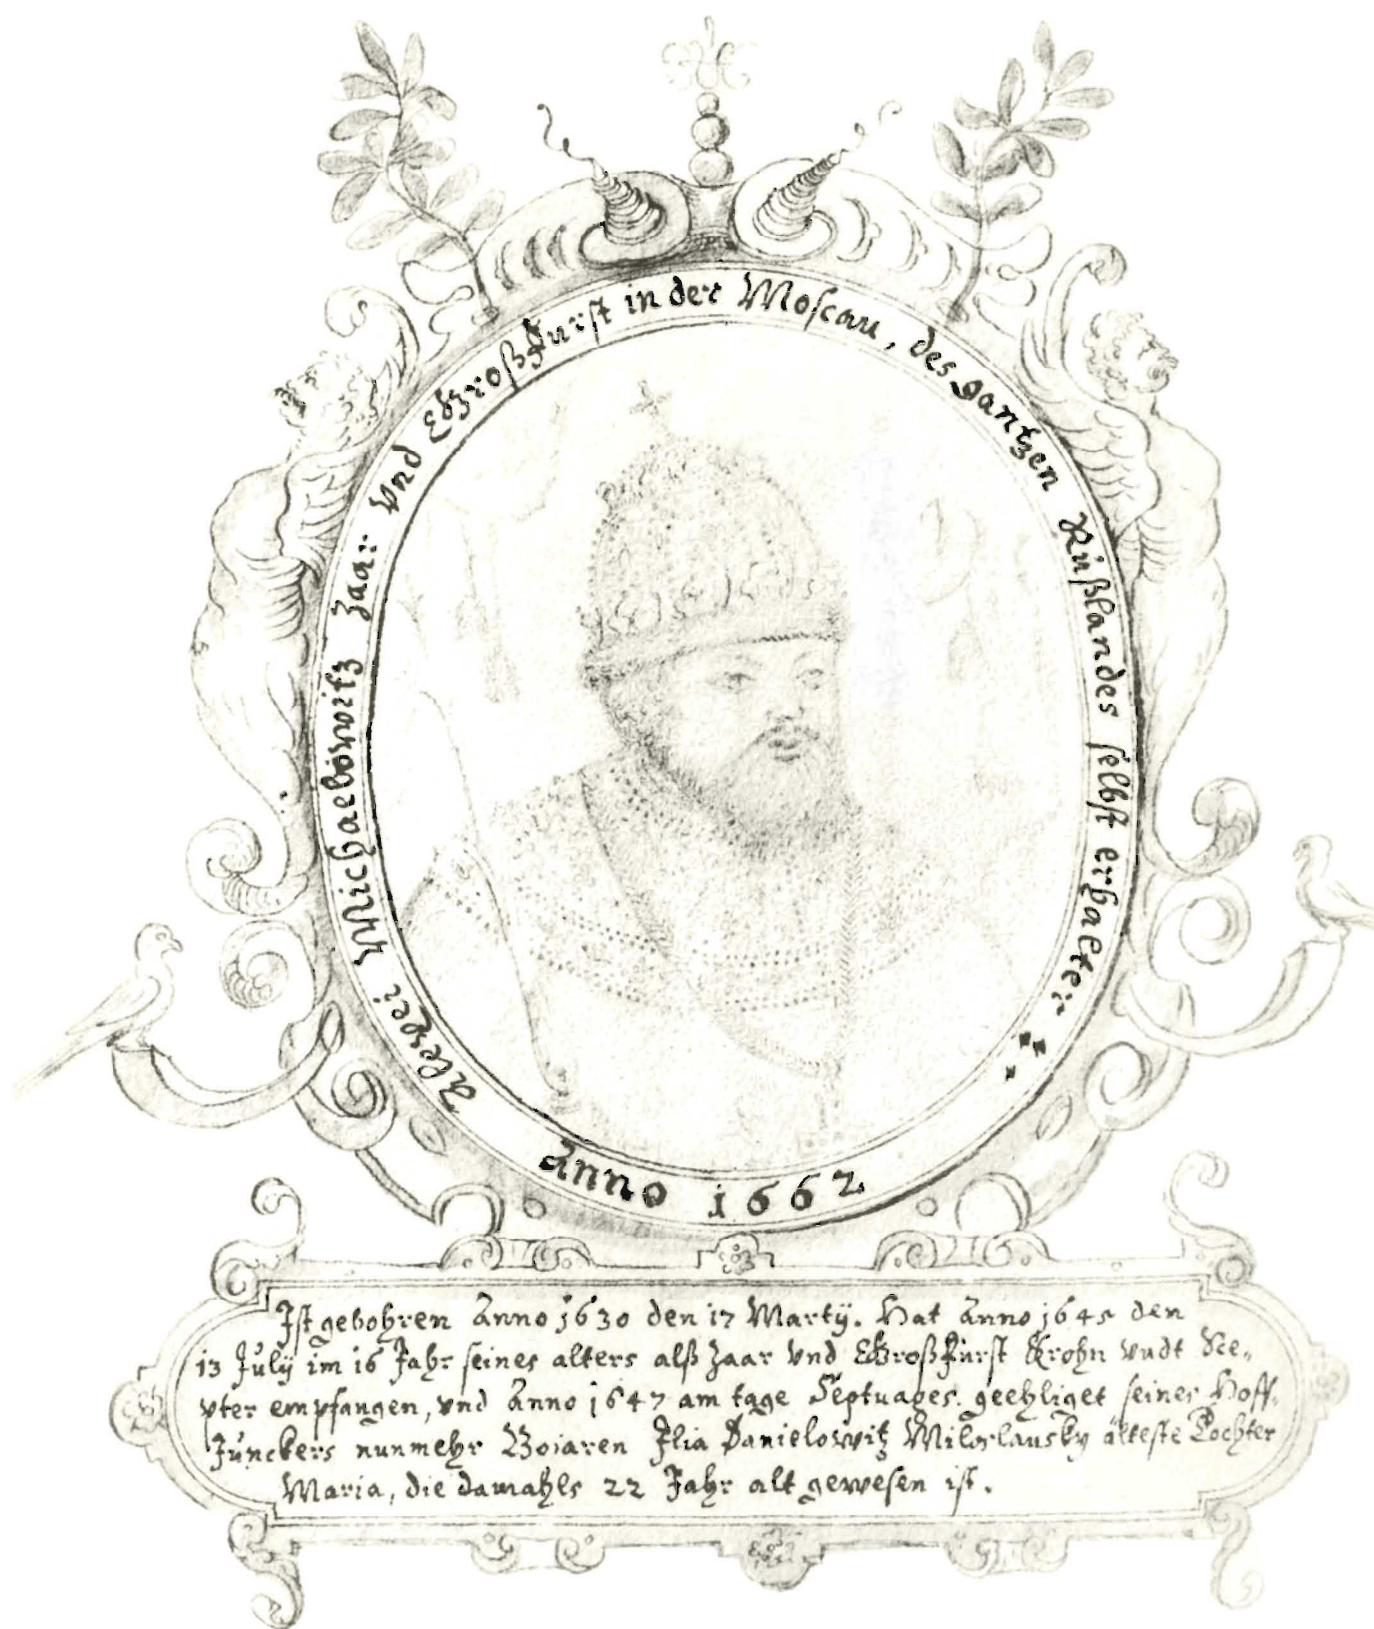 Alexei Michaelowitz Zaar vnd Großfurst in der Moscau, des gantzen Rußlandes selbst erhalter
Anno 1662
Ist gebohren Anno 1630 den 17 Martÿ. Hat Anno 1645 den
13 Julÿ im 16 Jahr seines alters alß Zaar vnd Großfürst Krohn vndt Sce-
pter empfangen, vnd Anno 1647 am tage Septuages. geehliget seines Hoff-
Junckers nunmehr Boiaren Ilia Danielowitz Miloslausky älteste Tochter
Maria, die damahls 22 Jahr alt gewesen ist.